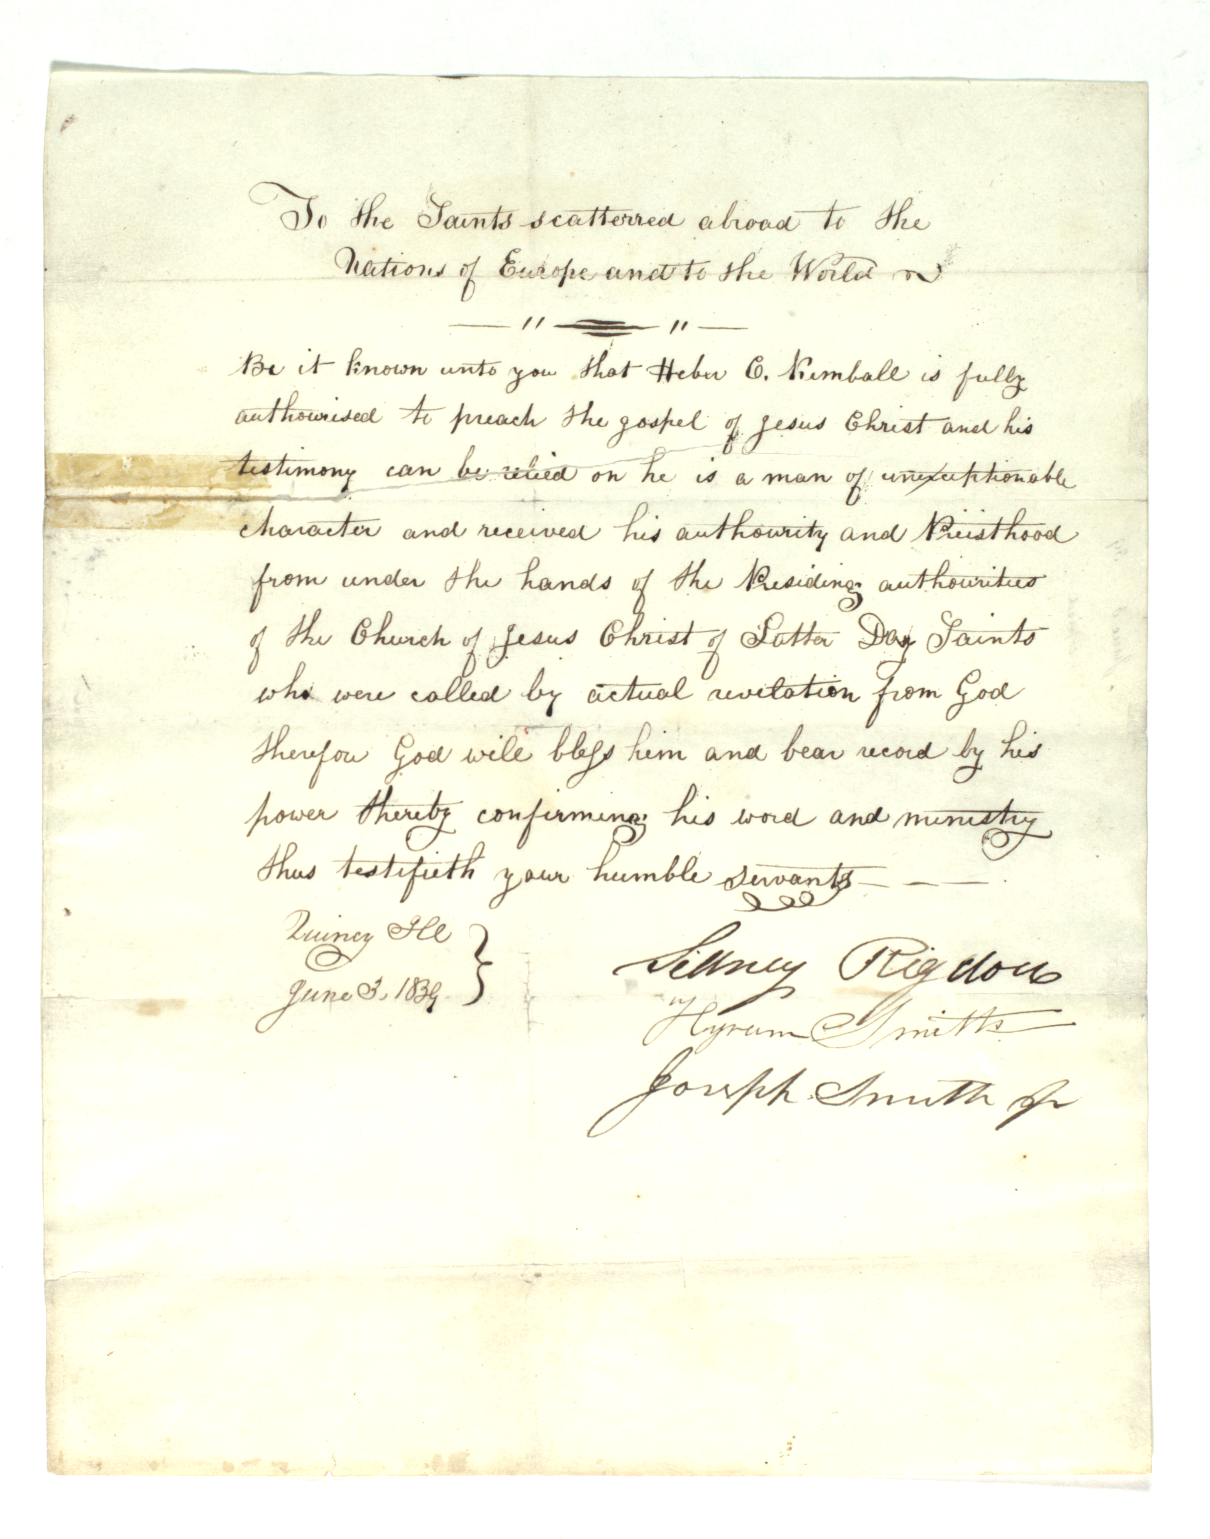 To the Saints scatterred abroad to the
Nations of Europe and to the World
Be it known unto you that Heber C. Kimball is fully
authourised to preach the gospel of Jesus Christ and his
testimony can be relied on he is a man of unexceptionable
character and received his authourity and Priesthood
from under the hands of the Presiding authourities
of the Church of Jesus Christ of Latter Day Saints
who were called by actual revelation from God
therefore God will bless him and bear record by his
power thereby confirming his word and ministry
thus testifieth your humble servants
Quincy Ill
June 3, 1839
Sidney Rigdon
Hyrum Smith
Joseph Smith Jr